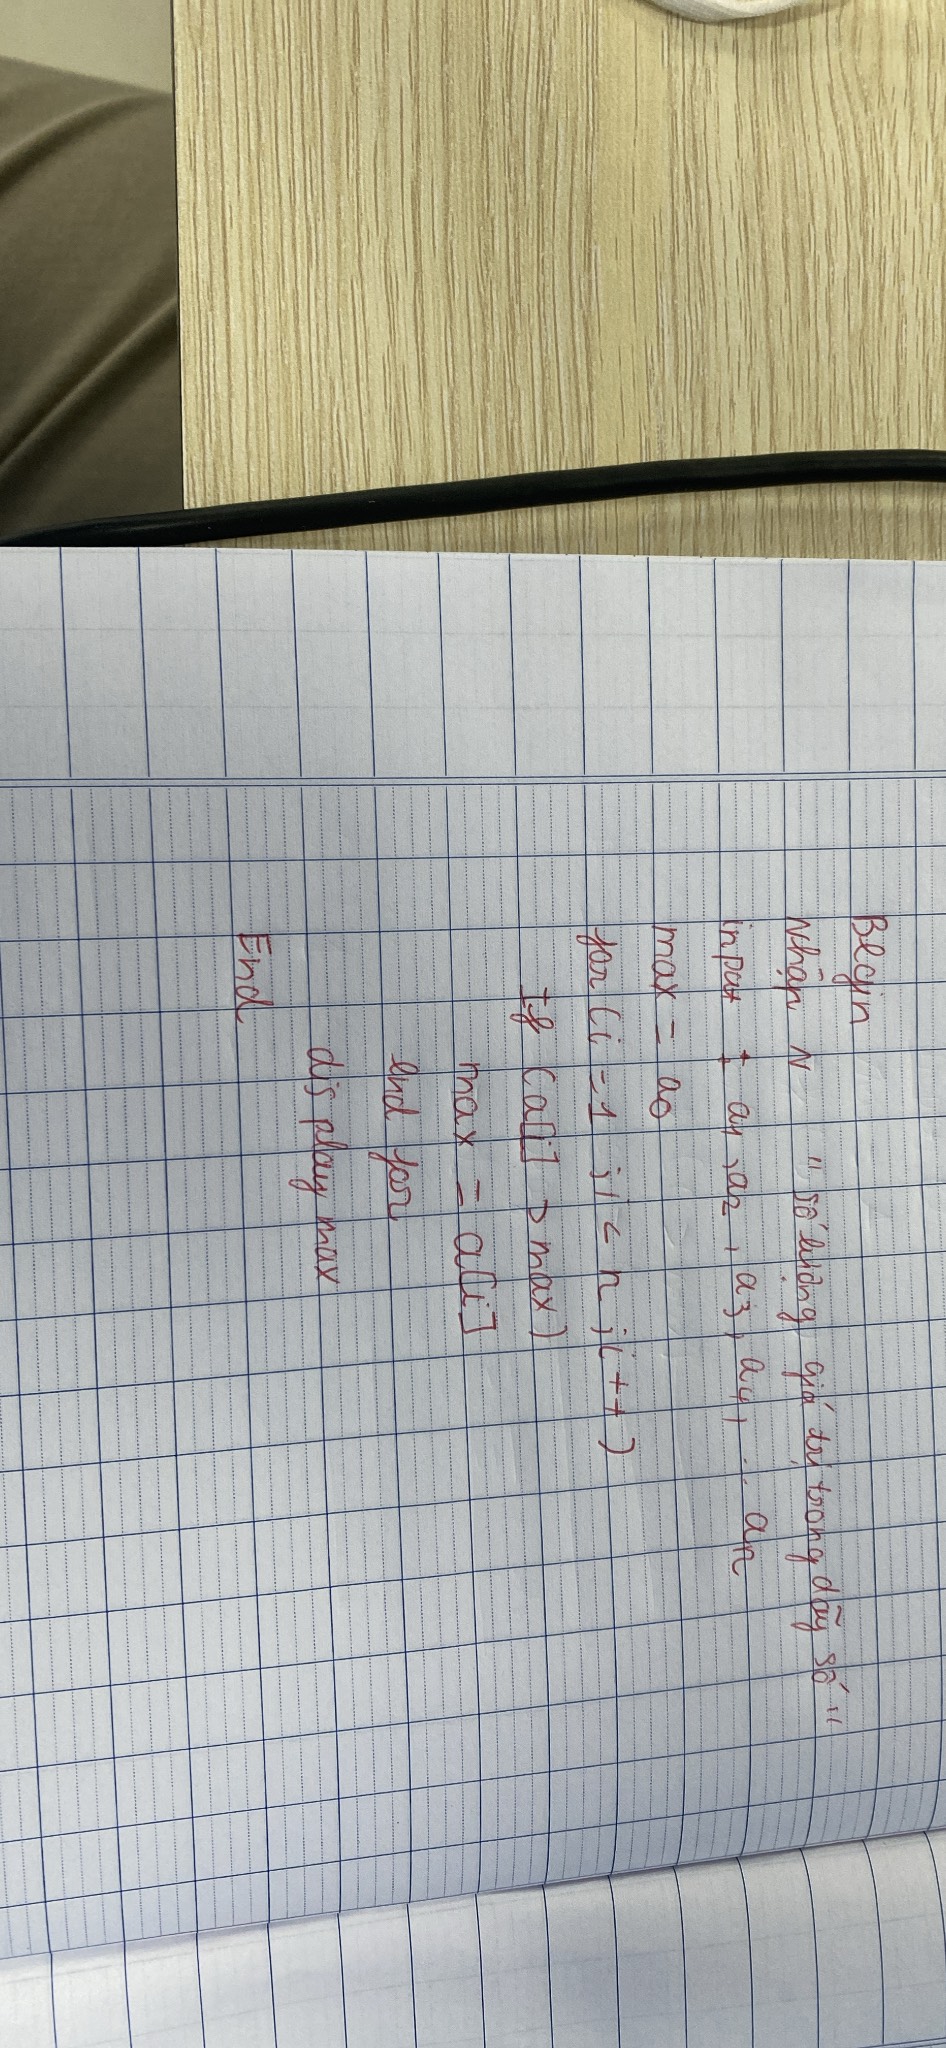 Begin
Nhập N "số lượng giá trị trong dãy số"
input I a1, a2, a3, a4, ... an
max = a0
for (i = 1 ; i < n ; i++)
If (a[i] > max)
max = a[i]
end for
display max
End